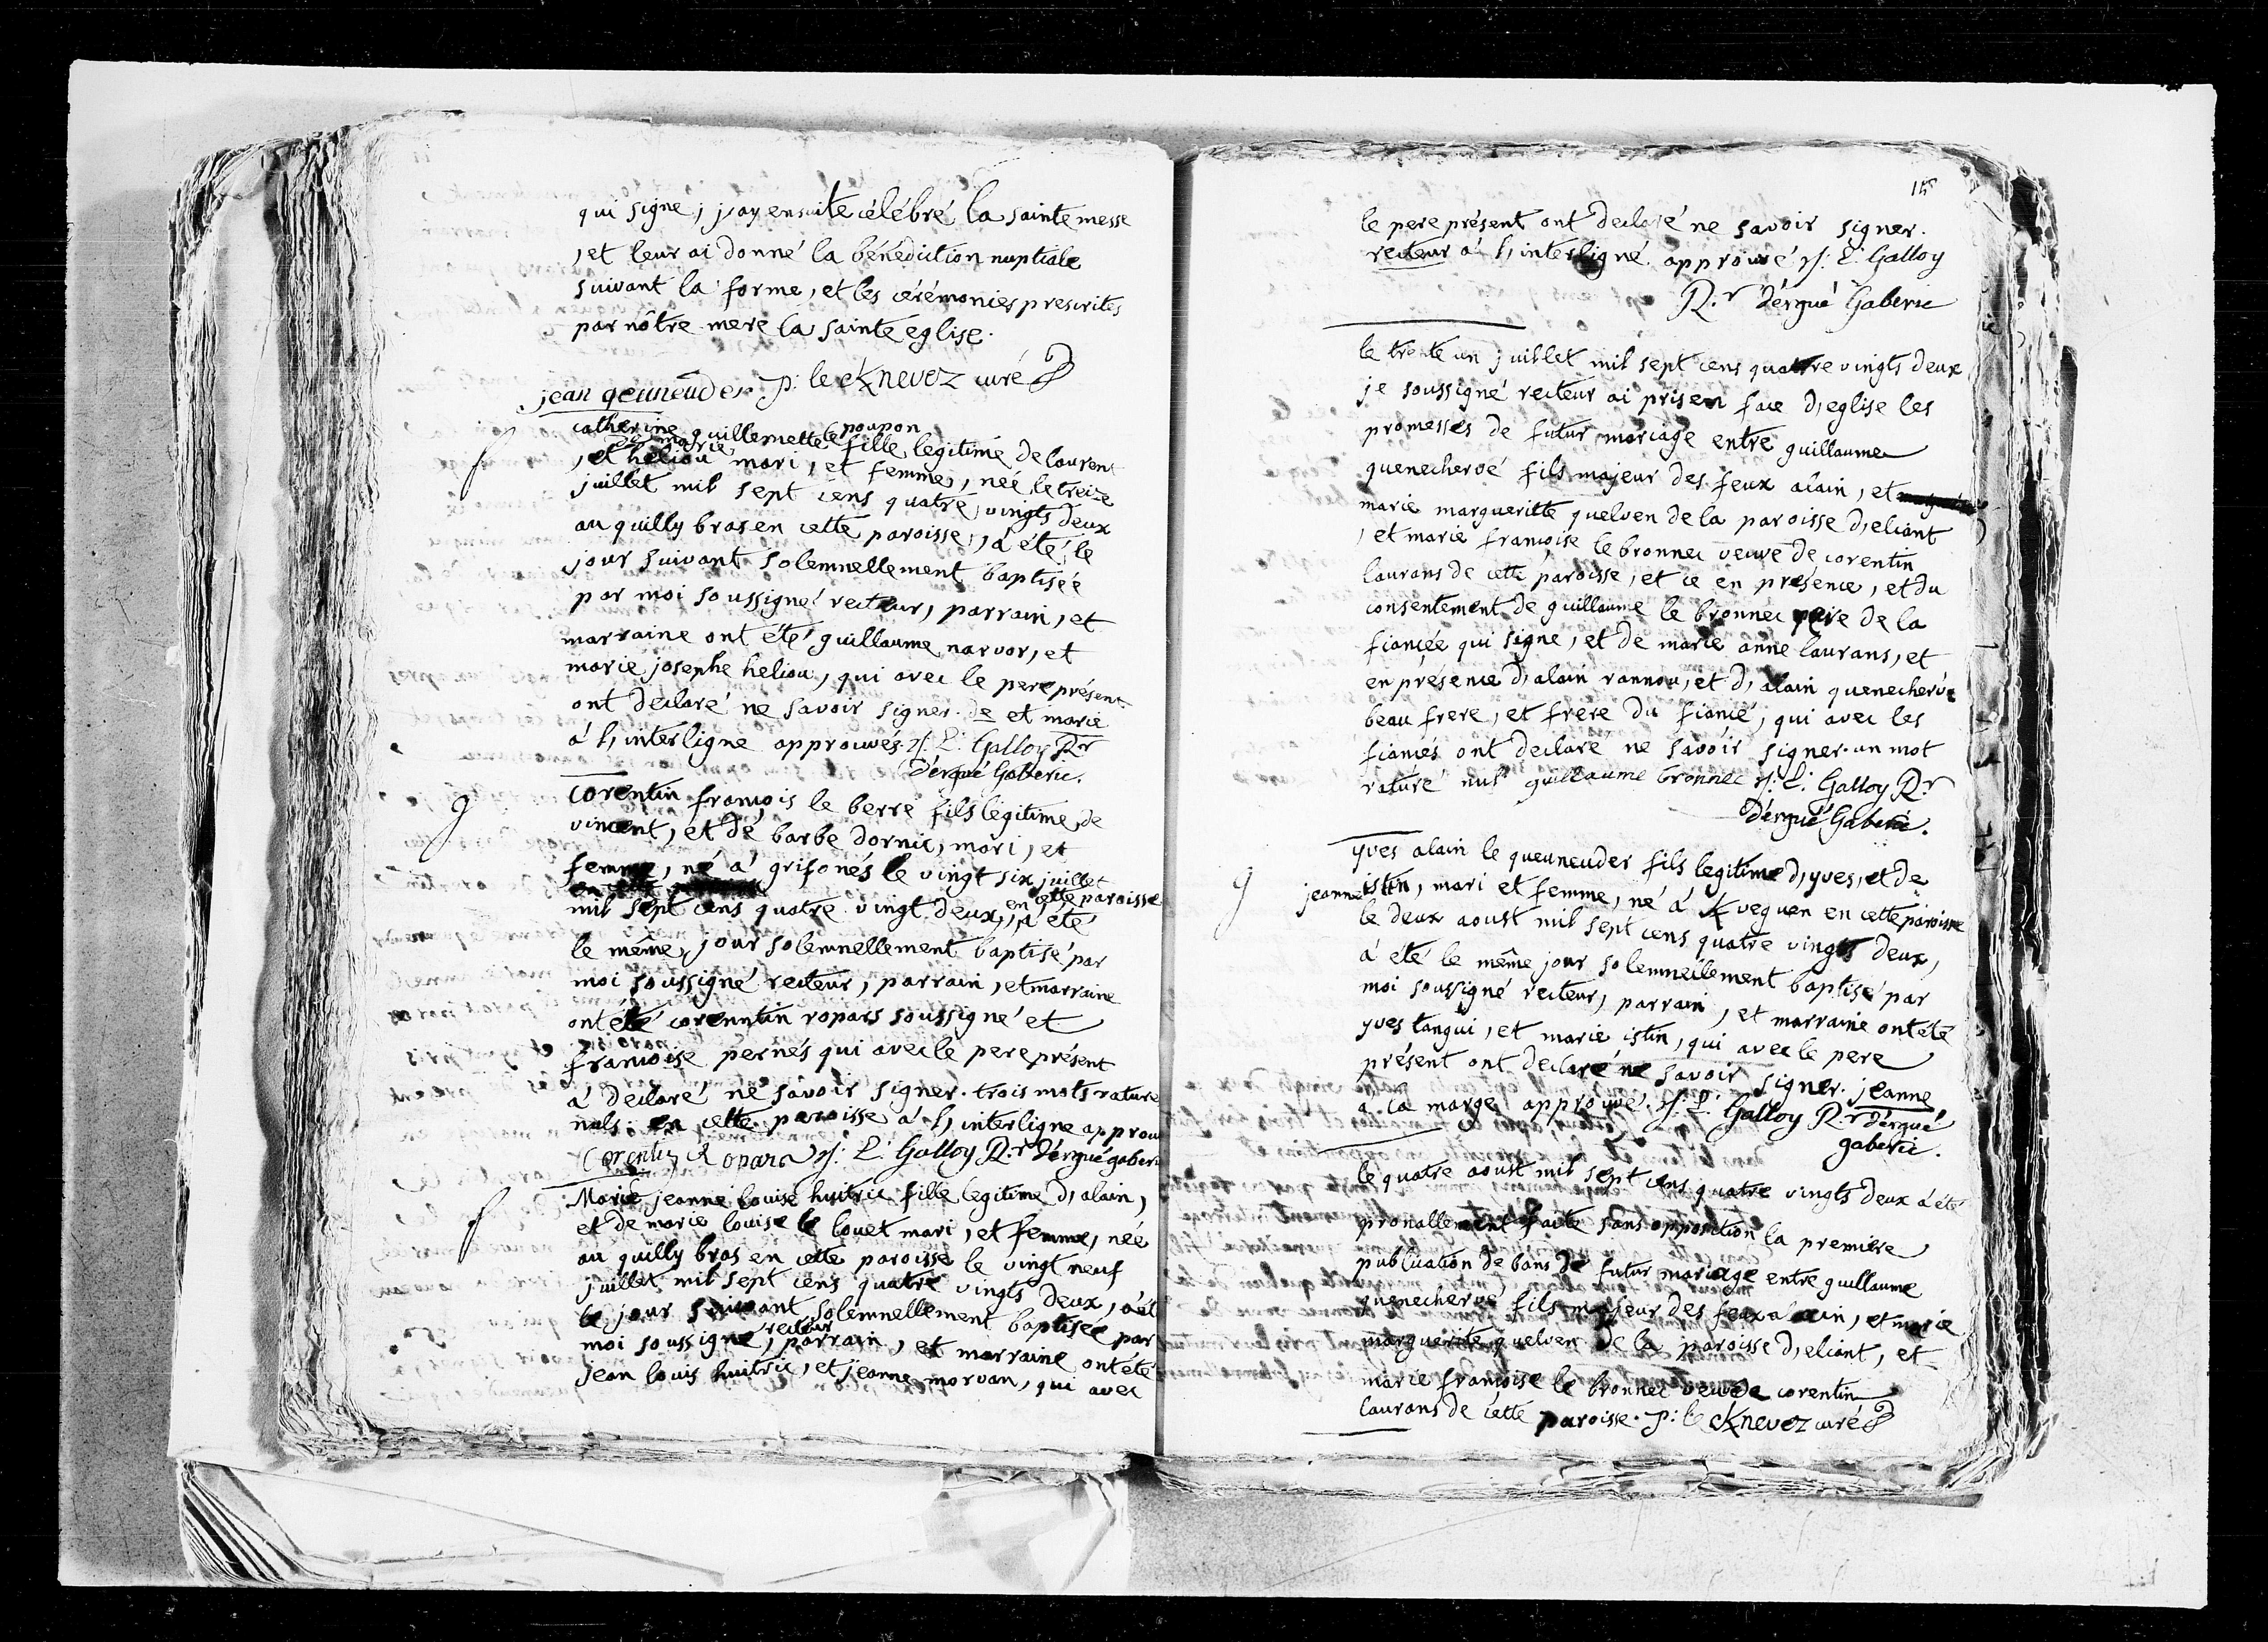 qui signe, j,ay ensuite célébré la sainte messe
, et leur ai donné la bénédiction nuptiale
suivant la forme, et les cérémonies prescrites
par nôtre mere la sainte eglise.
jean qeuneuder p: le Knevez curé
catherine guillemette le poupon fille legitime de laurent
, et de marie heliou mari, et femme, née le treize
juillet mil sept cens quatre vingts deux
au quilly bras en cette paroisse, á été le
jour suivant solemnellement baptisée
par moi soussigné recteur, parrain, et
marraine ont été guillaume narvor, et
marie josephe heliou, qui avec le pere présent
ont declaré ne savoir signer. de et marie
á l, interligne approuvés. rf. L: Galloy Rr
Dérgué Gaberic.
g
Corentin françois le berre fils legitime de
vincent, et de barbe dornic, mari, et
femme, né á grifonés le vingt six juillet
mil sept cens quatre vingt deux, en cette paroisse á été
le même jour solemnellement baptisé par
moi soussigné recteur, parrain, et marraine
ont été corenntin ropars soussigné et
françoise pernés qui avec le pere présent
á declaré ne savoir signer. trois mots raturé
nuls. en cette paroisse á l, interligne approu
Corentin Ropars rf: L: Galloy R.r Dérgué gaberic
f
Marie jeanne louise huitric fille legitime d, alain,
et de marie louise le louet mari, et femme, née
au quilly bras en cette paroisse le vingt neuf
juillet mil sept cens quatre vingts deux, á été
le jour suivant solemnellement baptisée par
moi soussigné recteur, parrain, et marraine ont été
jean louis huitric, et jeanne morvan, qui avec
15
le pere présent ont declaré ne savoir signer.
recteur á l, interligne approuvé rf: L: Galloy
R.r Dérgué Gaberic
le trente un juillet mil sept cens quattre vingts deux
je soussigné recteur ai pris en face d, eglise les
promesses de futur mariage entre guillaume
quenechervé fils majeur des feux alain, et
marie margueritte quelven de la paroisse d, eliant
, et marie françoise le bronnec veuve de corentin
laurans de cette paroisse, et ce en présence, et du
consentement de guillaume le bronnec pere de la
fiancée qui signe, et de marie anne laurans, et
en présence d, alain rannou, et d, alain quenechervé
beau frere, et frere du fiancé, qui avec les
fiancés ont declaré ne savoir signer. un mot
raturé nul guillaume bronnec rf: L: Galloy R.r
Dérgué Gaberic.
g
yves alain le queuneuder fils legitime d, yves, et de
jeanne istin, mari et femme, né á Kveguen en cette paroisse
le deux aoust mil sept cens quatre vingts deux,
á été le même jour solemnellement baptisé par
moi soussigné recteur, parrain, et marraine ont été
yves tangui, et marie istin, qui avec le pere
présent ont declaré ne savoir signer. jeanne
á la marge approuvé. rf: L: Galloy R.r Dérgué
gaberic.
le quatre aoust mil sept cens quatre vingts deux á été
pronallement faite sans opposition la premiere
publication de bans de futur mariage entre guillaume
quenechervé fils majeur des feux alain, et marie
margueritte quelven de la paroisse d, eliant, et
marie françoise le bronnec veuve de corentin
laurans de cette paroisse. p: le Knevez curé